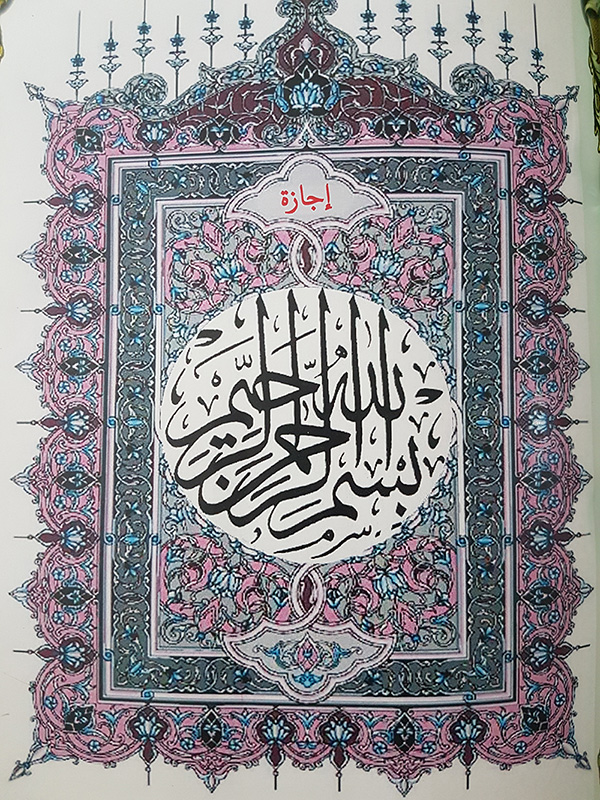 إجازة
بسم الله الرحمن الرحيم